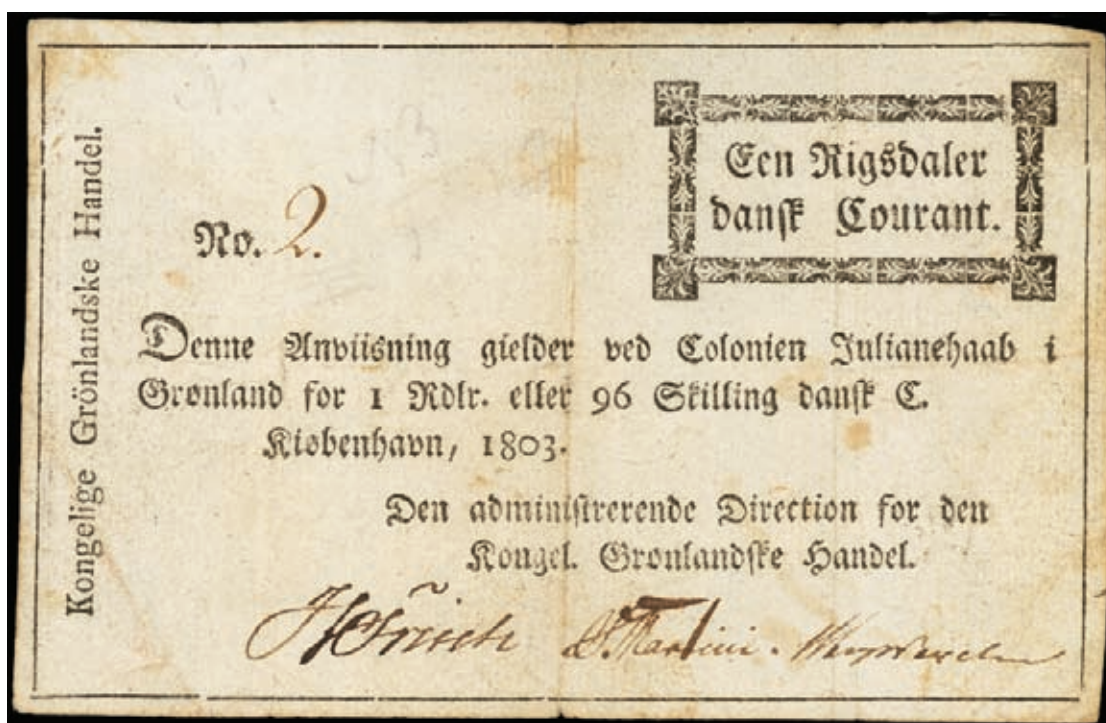 Kongelige Grönlandske Handel.
Een Rigsdaler
dansk Courant.
No. 2.
Denne Anviisning gielder ved Colonien Julianehaab i
Grønland for 1 Rdlr. eller 96 Skilling dansk C.
Kiøbenhavn, 1803.
Den administrerende Direction for den
Kongel. Grønlandske Handel.